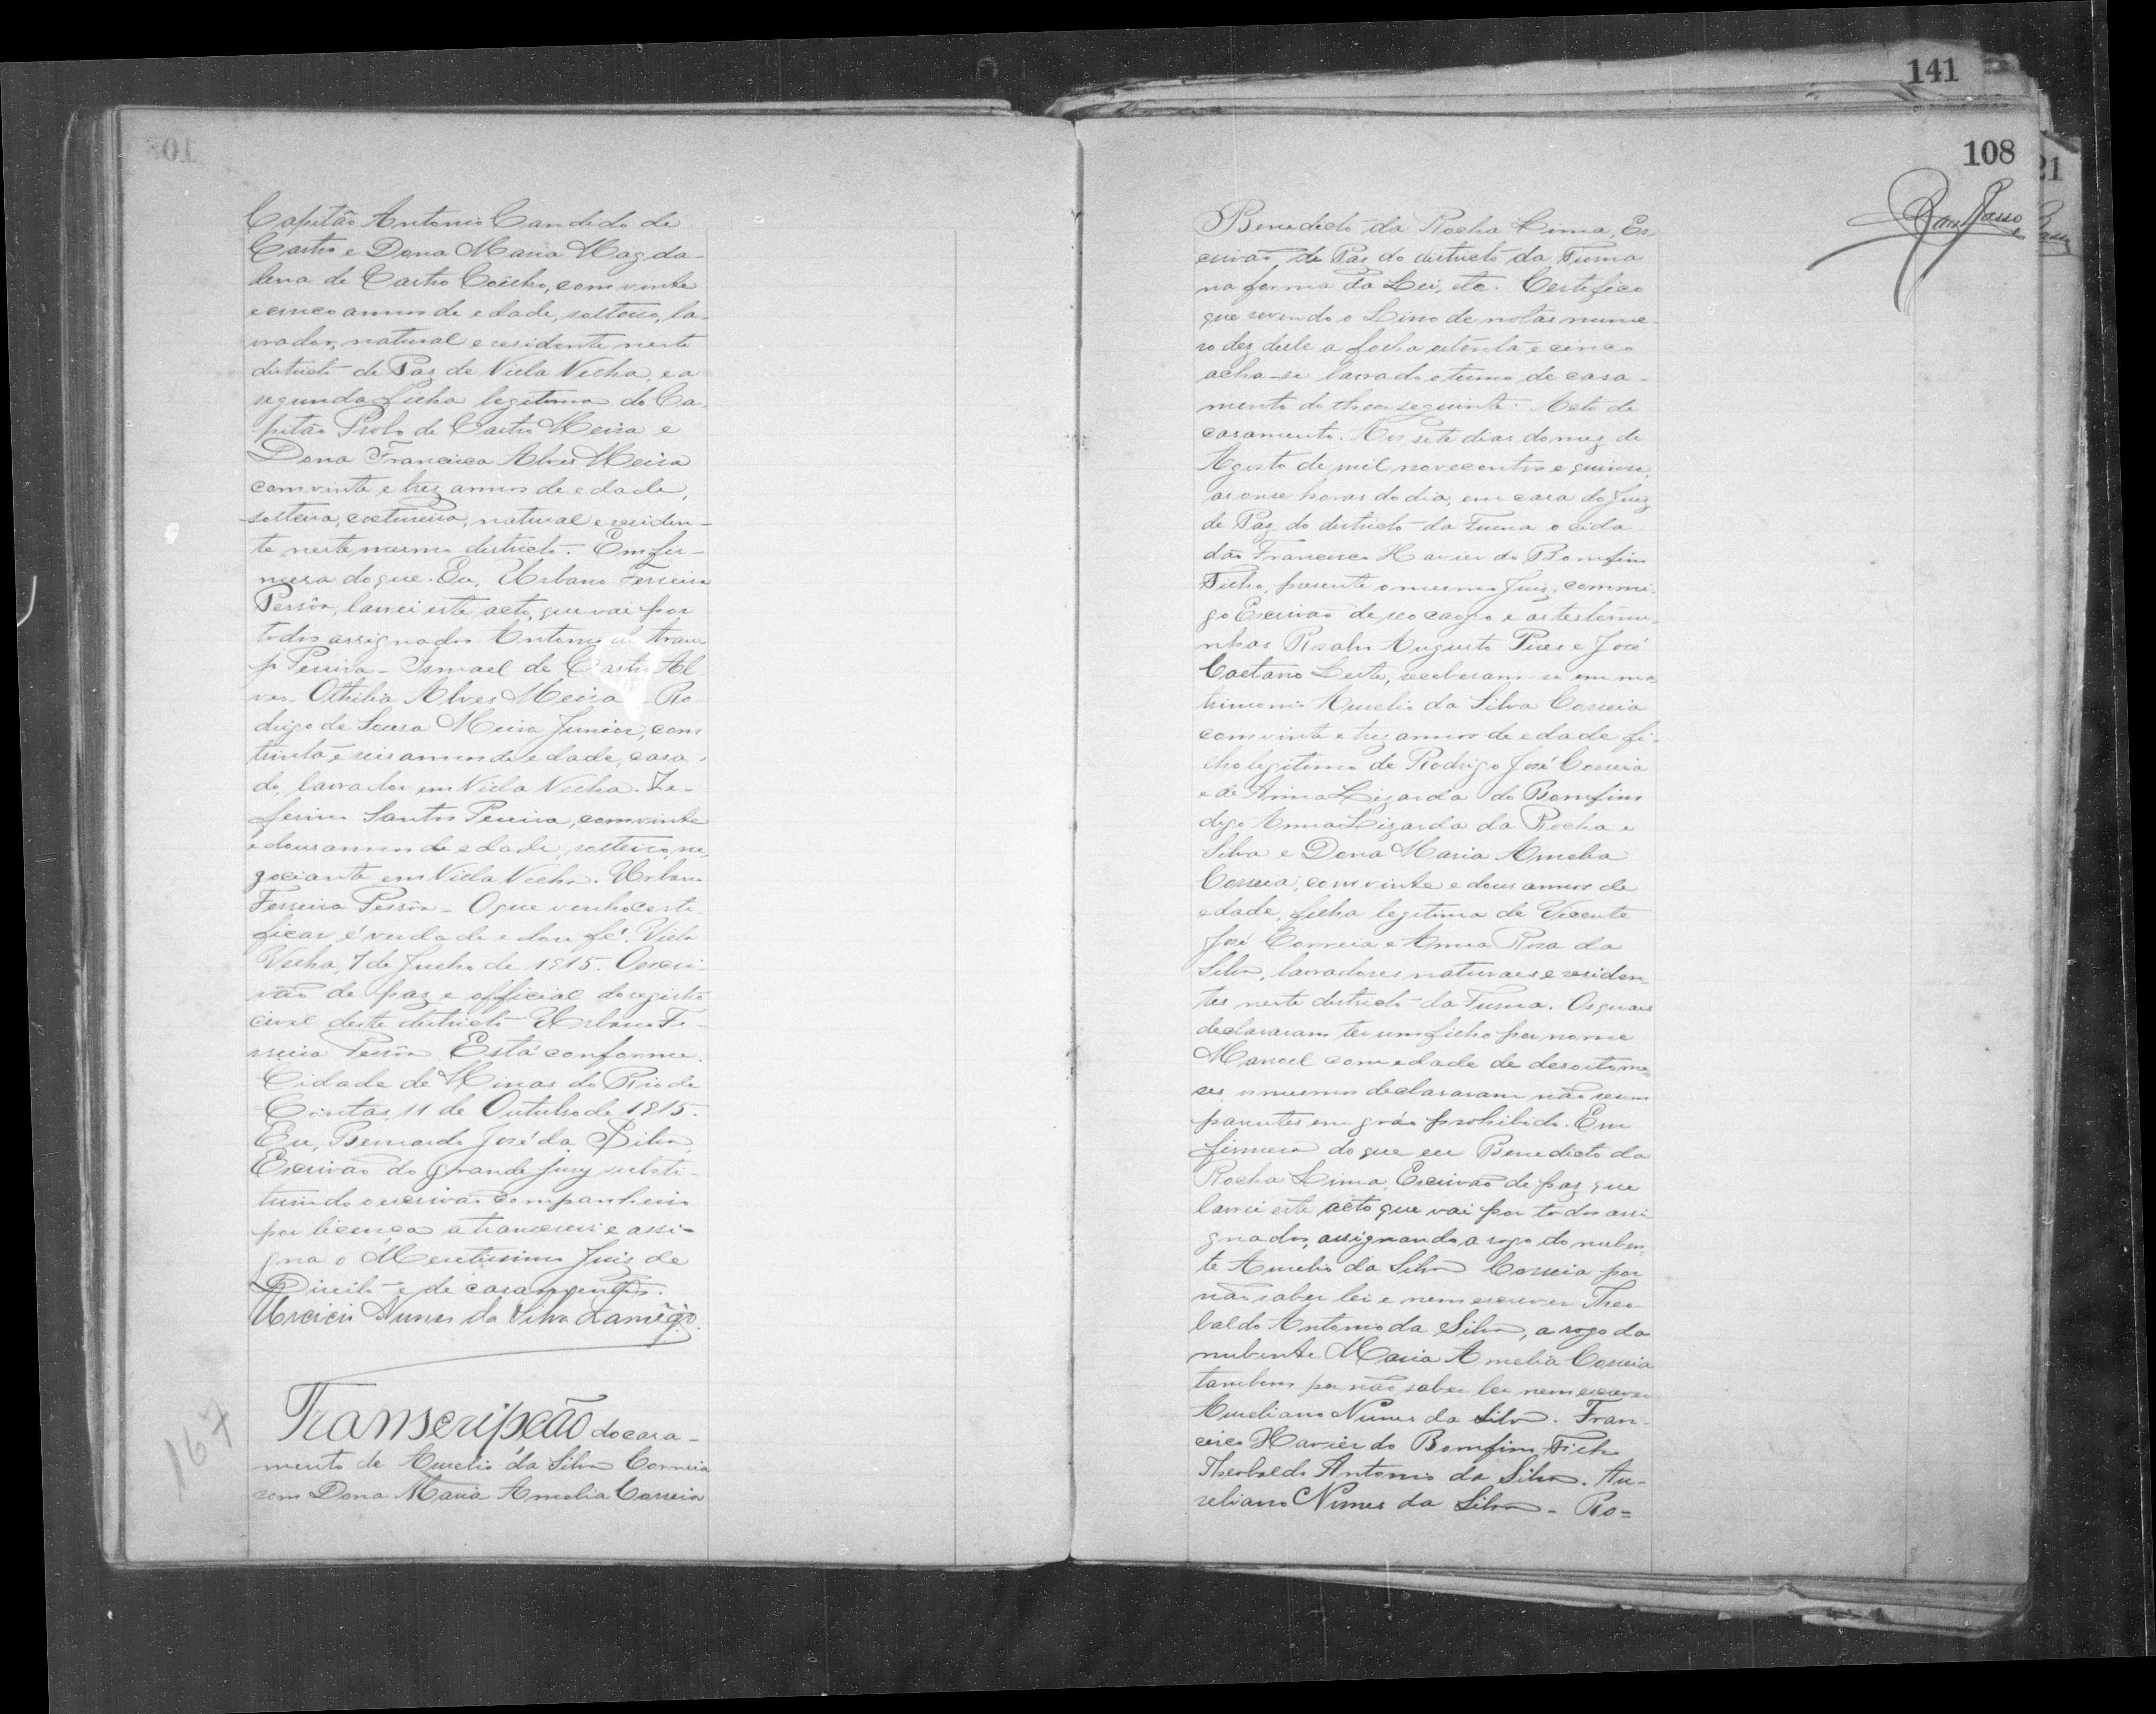 Capitão Antonio Candido de
Castro e Dona Maria Magda-
lena de Castro Coêlho, com vinte
e cinco annos de edade, solteiro, la-
vrador, natural e residente neste
districto de Paz de Villa Velha, e a
segunda filha legitima do Ca-
pitão Probo de Castro Meira e
Dona Francisca Alves Meira
com vinte e trez annos de edade,
solteira, costureira, natural e residen-
te neste mesmo districto. Em fir-
meza do que. Eu, Urbano Ferreira
Pessôa, lavrei este acto, que vai por
todos assignados Antonio de Arau-
jo Pereira - Ismael de Castro Al-
ves. Othilia Alves Meira - Ro-
drigo de Sousa Meira Junior, com
trinta e seis annos de edade, casa-
do, lavrador em Villa Velha. Ze-
ferino Santos Pereira, com vinte
e dous annos de edade, solteiro, ne-
gociante em Villa Velha. Urbano
Ferreira Pessôa - O que venho certi-
ficar é verdade e dou fé. Villa
Velha, 7 de Julho de 1915. O escri-
vão de paz e official do registro
civil deste districto Urbano Fe-
rreira Pessôa. Está conforme.
Cidade de Minas do Rio de
Contas, 11 de Outubro de 1915.
Eu, Bernardo José da Silva,
Escrivão do grande jury substi-
tuindo o escrivão companheiro
por licença a transcrevi e assi-
gna o Meritissimo Juiz de
Direito e de casamentos.
Nunes da Silva Lamêgo.
167
Transcripção do casa-
mento de Aurelio da Silva Correia
com Dona Maria Amelia Correia
141
108
21
Benedicto da Rocha Lima, Es-
crivão de Paz do districto da Furna
na forma da Lei, etc. Certifico
que revendo o Livro de notas nume-
ro dez delle a folha setenta e cinco
acha-se lavrado o termo de casa-
mento do theor seguinte: Acto de
casamento. Aos sete dias do mez de
Agosto de mil novecentos e quinse,
as onse horas do dia, em casa do Juiz
de Paz do districto da Furna o cida-
dão Francisco Xavier do Bomfim
Filho, presente o mesmo Juiz, commi-
go Escrivão de seo cargo e as testemu-
nhas Rosalvo Augusto Pires e José
Caetano Leite, receberam-se em ma-
trimonio Aurelio da Silva Correia
com vinte e trez annos de edade fi-
lho legitimo de Rodrigo José Correia
e de Anna Lizarda do Bomfim
digo Anna Lizarda da Rocha e
Silva e Dona Maria Amelia
Correia, com vinte e dous annos de
edade, filha legitima de Vicente
José Correia e Anna Rosa da
Silva, lavradores naturaes e residen-
tes neste districto da Furna. Os quaes
declararam ter um filho por nome
Manoel com edade de desoito me-
ses, o mesmo declararam não serem
parentes em gráo prohibido. Em
firmesa do que eu Benedicto da
Rocha Lima, Escrivão de paz que
lavrei este acto que vai por todos assi-
gnados, assignando a rogo do nuben-
te Aurelio da Silva Correia por
não saber lei e nem escrever Theo-
baldo Antonio da Silva, a rogo da
nubente Maria Amelia Correia
tambem por não saber ler nem escrever
Aureliano Nunes da Silva. Fran-
cisco Xavier do Bomfim Filho
Theobaldo Antonio da Silva. Au-
reliano Nunes da Silva - Ro=